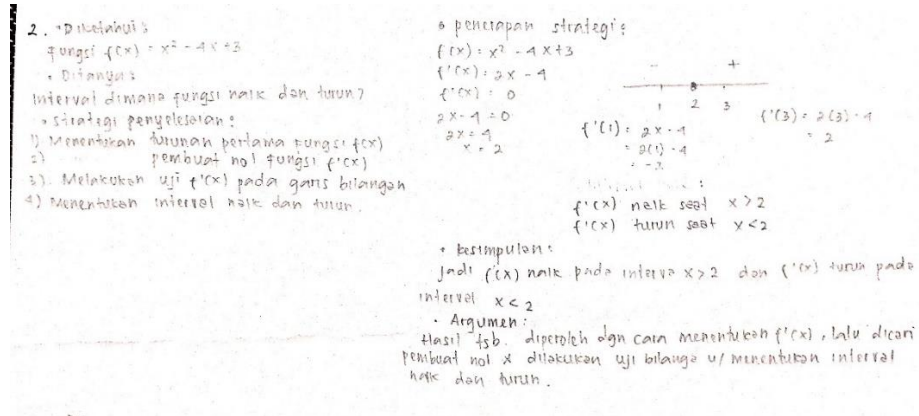 2. • Diketahui :
fungsi f(x) = x² - 4x +3
• Ditanya :
Interval dimana fungsi naik dan turun?
• strategi penyelesaian :
1) Menentukan turunan pertama fungsi f(x)
2) pembuat nol fungsi f'(x)
3). Melakukan uji f'(x) pada garis bilangan
4) Menentukan interval naik dan turun.
• penerapan strategi :
f(x) = x² - 4x+3
f'(x) = 2x - 4
f'(x) = 0
2x - 4 = 0
2x = 4
x = 2
- +
1 2 3
f'(1) = 2x - 4
= 2(1) - 4
= -2
f'(3) = 2(3) - 4
= 2
:
f'(x) naik saat x > 2
f'(x) turun saat x < 2
• kesimpulan :
Jadi f'(x) naik pada interva x > 2 dan f'(x) turun pada
interval x < 2
• Argumen :
Hasil tsb. diperoleh dgn cara menentukan f'(x), lalu dicari
pembuat nol & dilakukan uji bilanga u/ menentukan interval
naik dan turun.